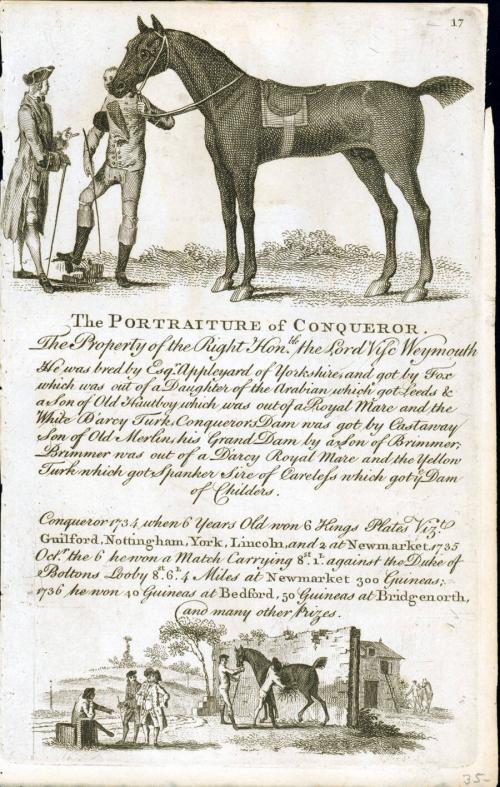 17
The PORTRAITURE of CONQUEROR.
The Property of the Right Hon.ble the Lord Visc Weymouth
He was bred by Esq.r Appleyard of Yorkshire, and got by Fox
which was out of a Daughter of the Arabian which got Leeds &
a Son of Old Hautboy which was out of a Royal Mare and the
White D'arcy Turk, Conquerors Dam was got by Castaway
Son of Old Merlin, his Grand Dam by a Son of Brimmer;
Brimmer was out of a Darcy Royal Mare and the Yellow
Turk which got Spanker Sire of Careless which got ye Dam
of Childers.
Conqueror 1734 when 6 Years Old won 6 Kings Plates Viz.t
Guilford, Nottingham, York, Lincoln, and 2 at Newmarket, 1735
Oct.r the 6 he won a Match Carrying 8st 1L against the Duke of
Boltons Looby 8st 6L 4 Miles at Newmarket 300 Guineas;
1736 he won 40 Guineas at Bedford, 50 Guineas at Bridgenorth,
and many other Prizes.
35-